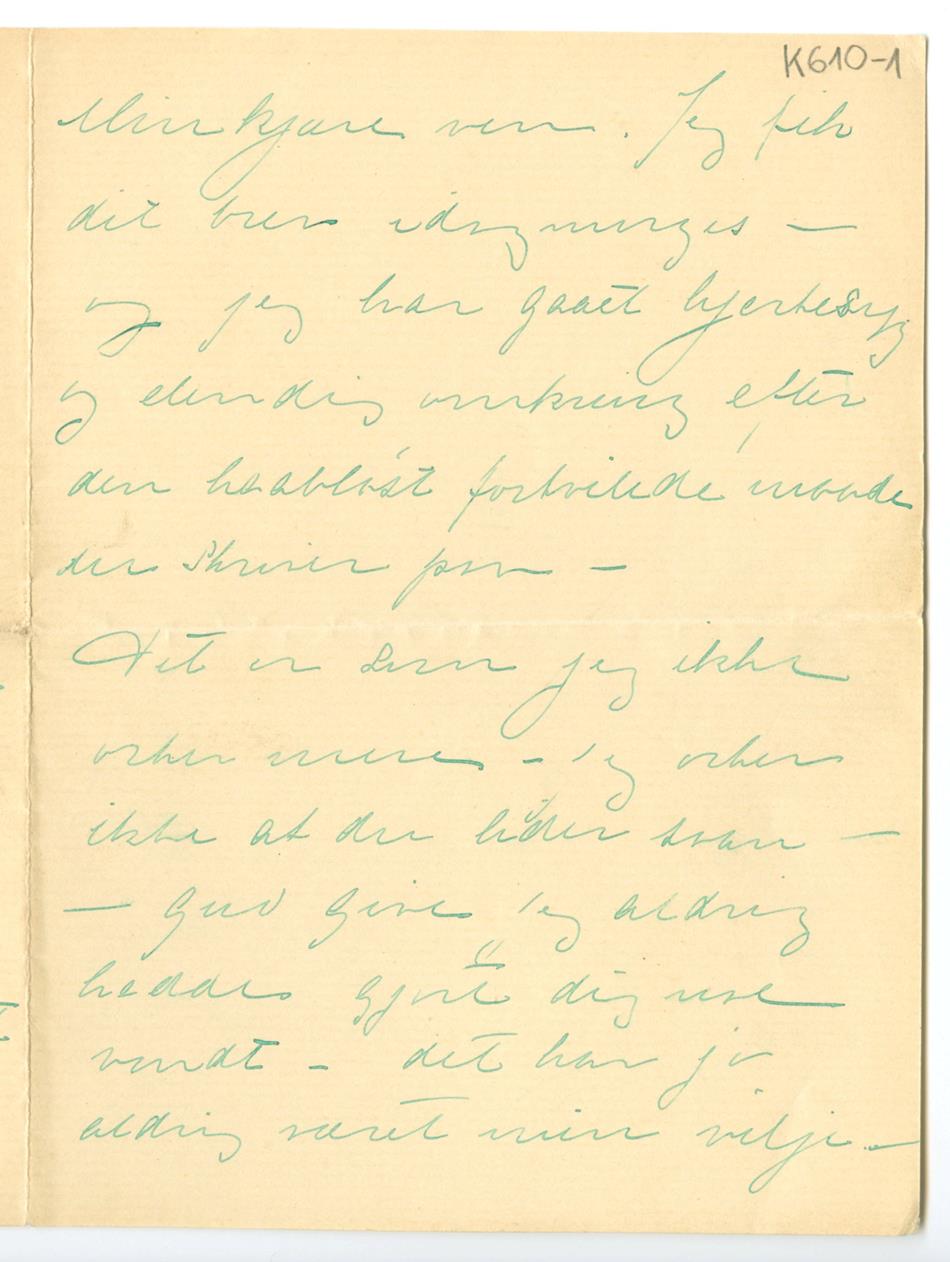 K610-1
Min kjære ven. Jeg fik
dit brev idag morges —
og jeg har gaaet hjertesyg
og elendig omkring efter
den haabløst fortvilede maade
du skriver paa —
Det er som jeg ikke
orker mere – jeg orker
ikke at du lider saan —
— gud give jeg aldrig
hadde gjort dig noe
vondt – det har jo
aldrig været min vilje –